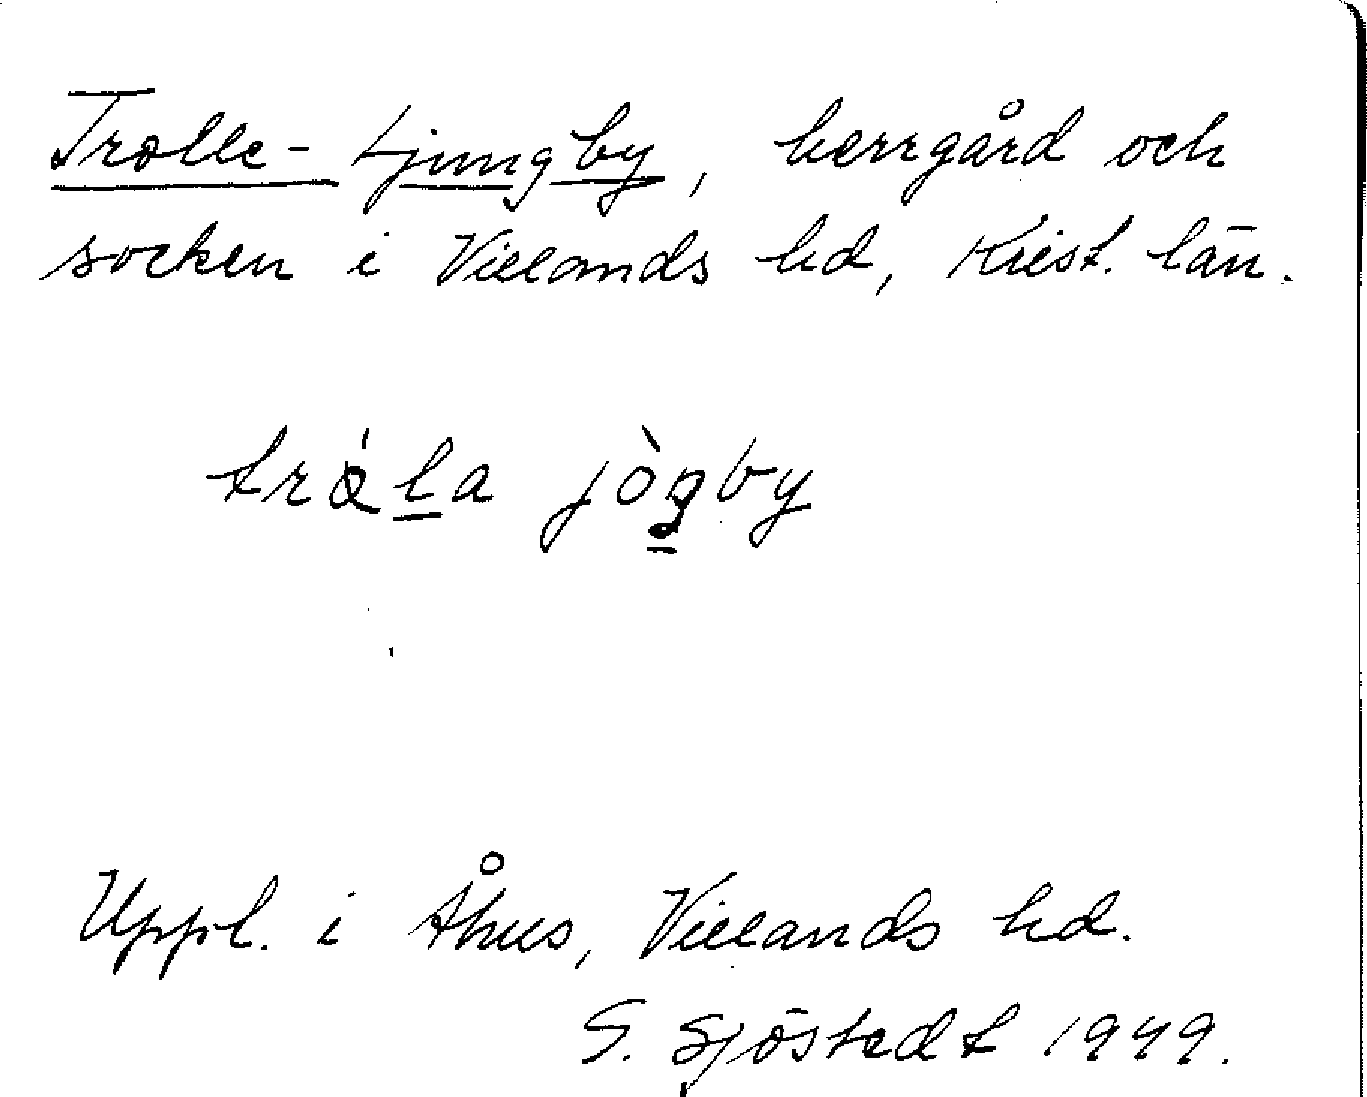 Trolle-Ljungby, herrgård och
socken i Villands hd, Krist. län.
trå̀l̲a jò̀ŋ̲by
Uppl. i Åhus, Villands hd.
G. Sjöstedt 1949.